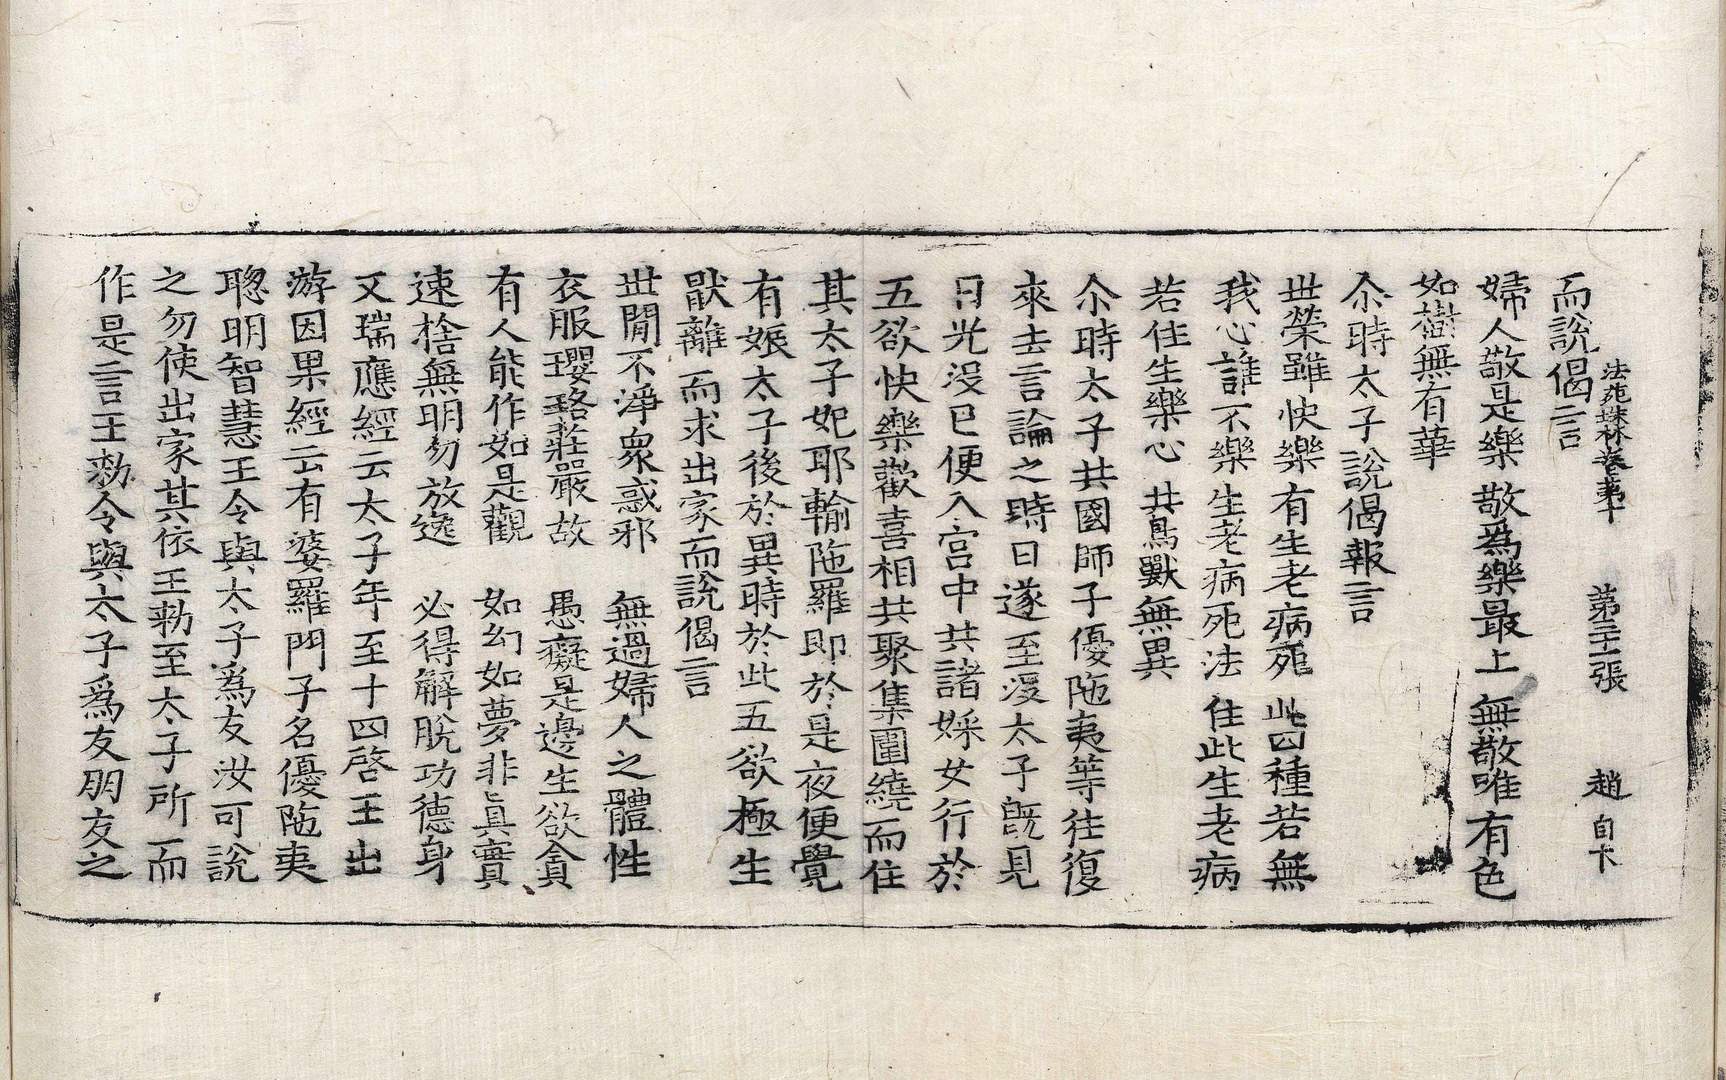 法苑珠林卷第十　第二十張　趙　自卞
而說偈言
婦人敬是樂　敬爲樂最上　無敬唯有色
如樹無有華
尒時太子說偈報言
世榮雖快樂　有生老病死　此四種若無
我心誰不樂　生老病死法　住此生老病
若住生樂心　共鳥獸無異
尒時太子共國師子優陁夷等往復
來去言論之時日遂至没太子旣見
日光沒已便入宮中共諸婇女行於
五欲快樂歡喜相共聚集圍繞而住
其太子妃耶輸陁羅即於是夜便覺
有娠太子後於異時於此五欲極生
猒離而求出家而說偈言
世閒不淨衆惑邪　無過婦人之體性
衣服瓔珞莊嚴故　愚癡是邊生欲貪
有人能作如是觀　如幻如夢非眞實
速捨無明勿放逸　必得解脫功德身
又瑞應經云太子年至十四啓王出
游因果經云有婆羅門子名優陁夷
聦明智慧王令與太子爲友汝可說
之勿使出家其依王勑至太子所而
作是言王勑令與太子爲友朋友之